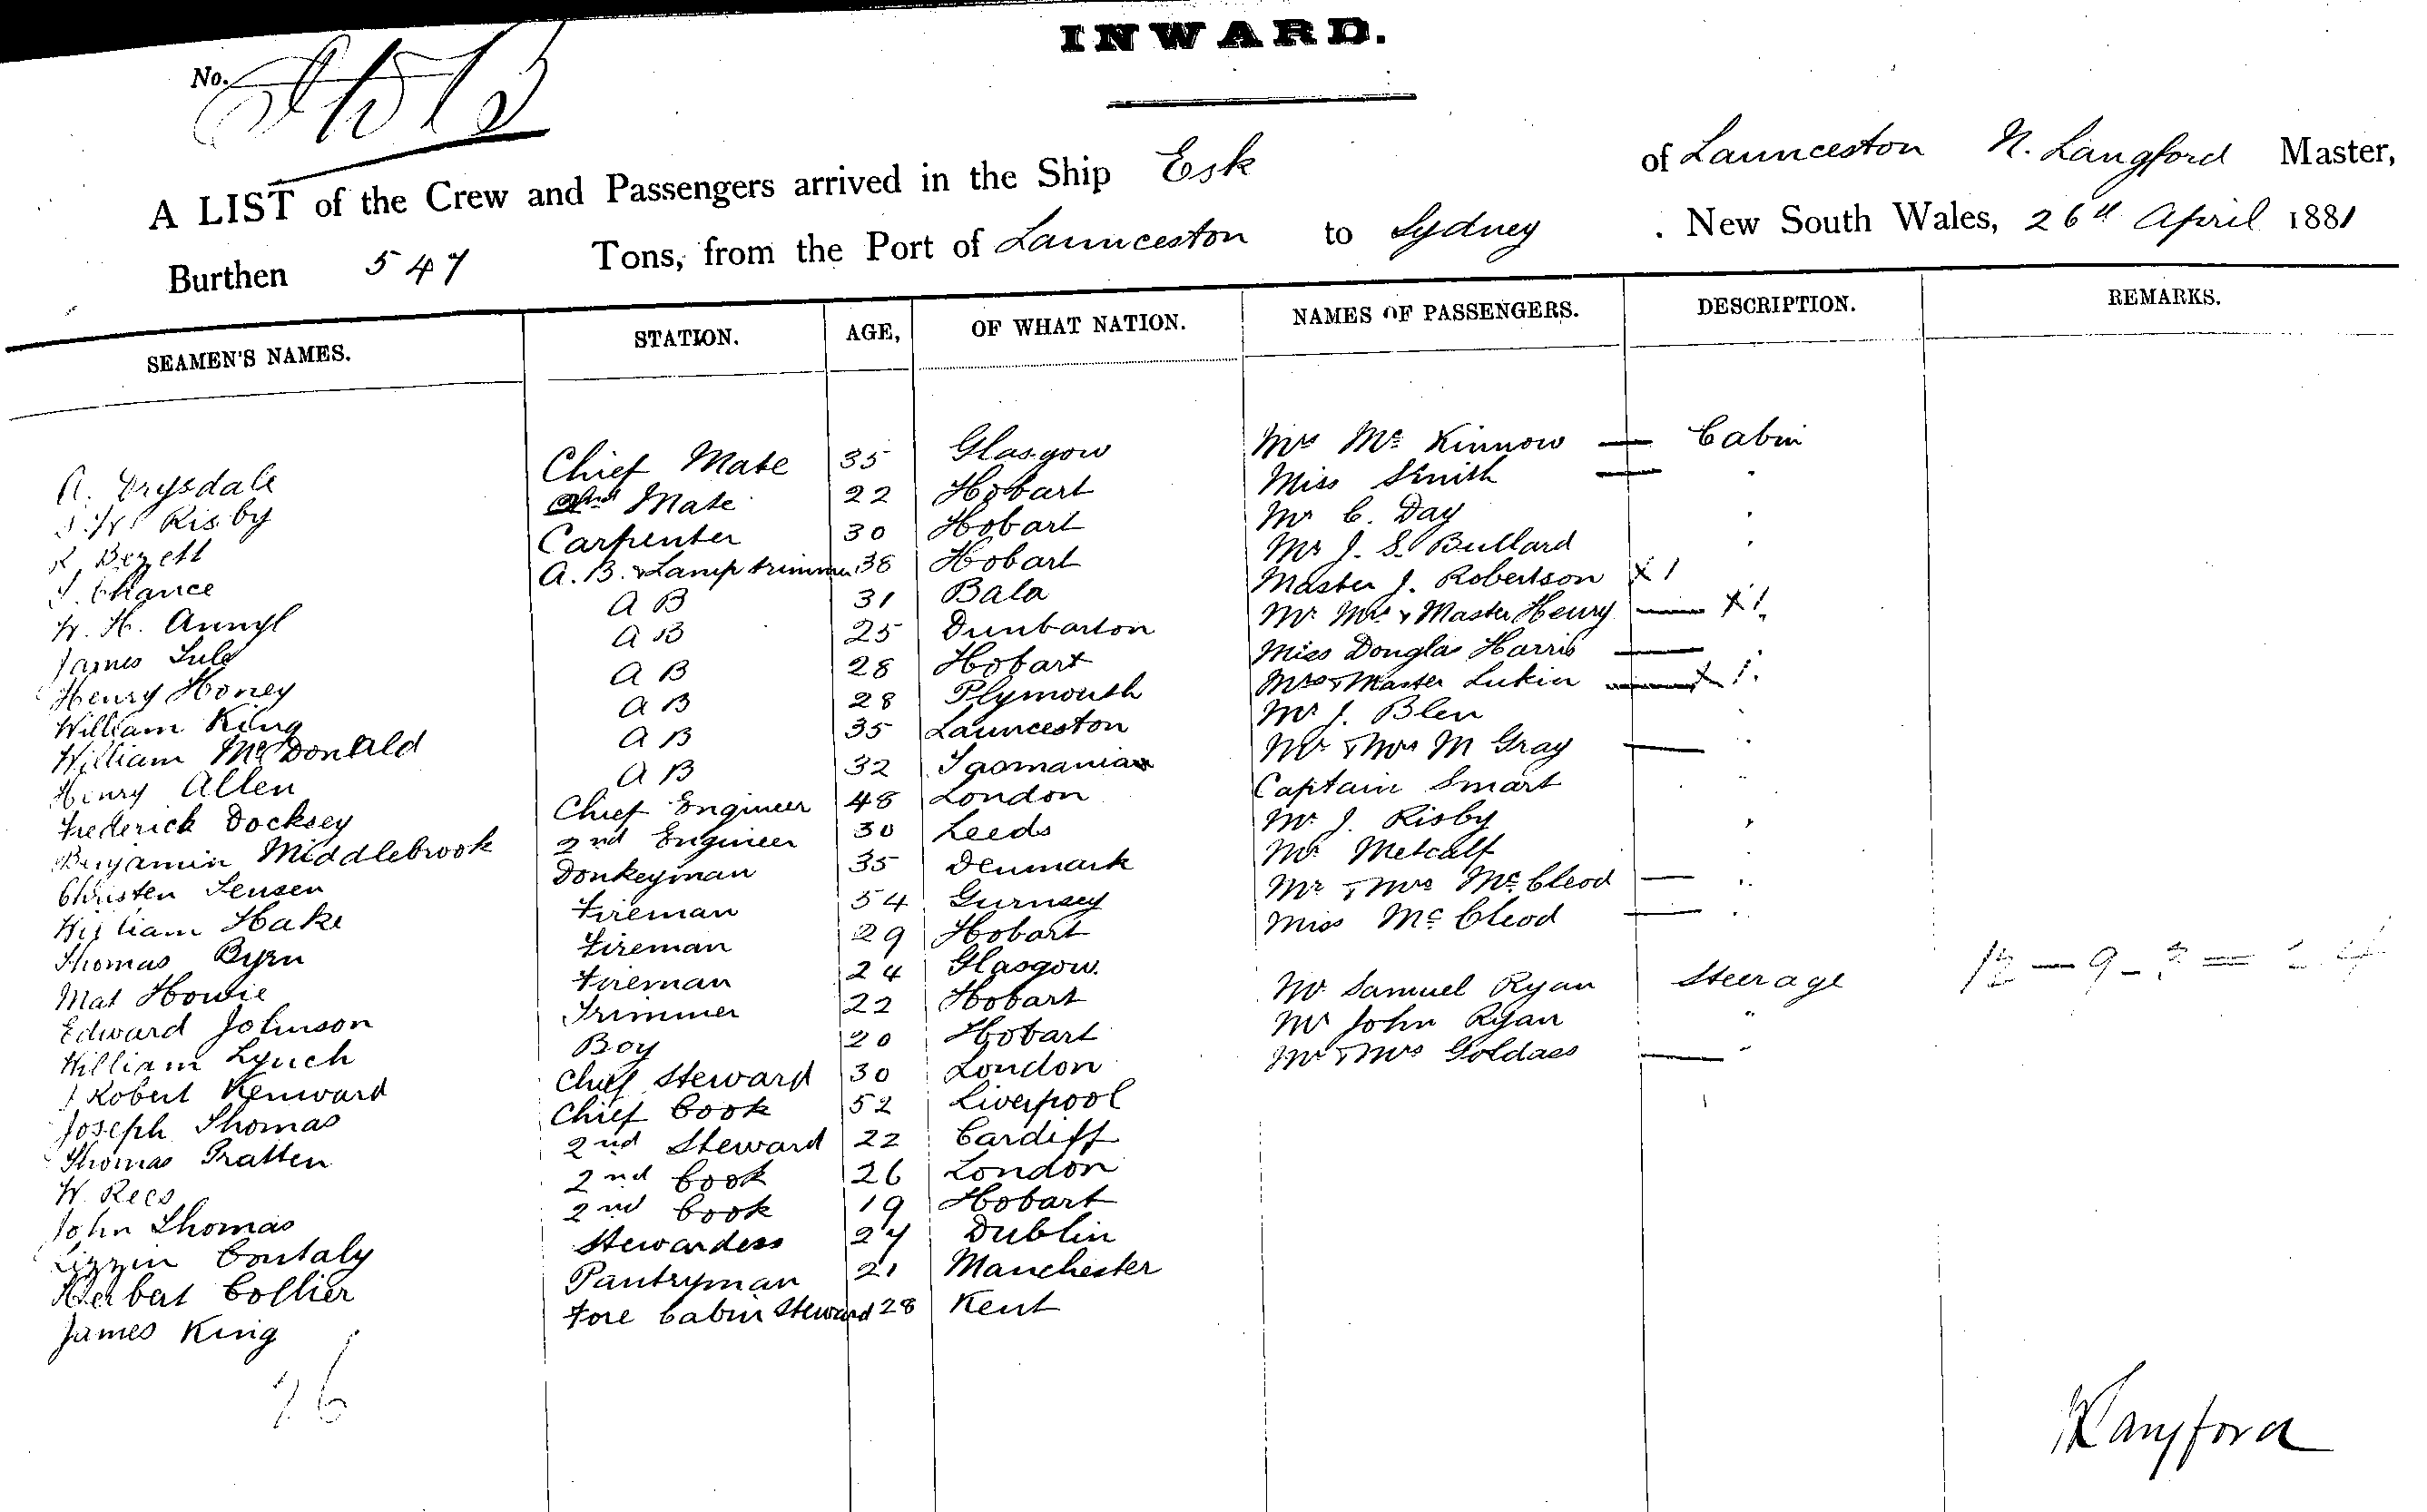 INWARD.
No.
A LIST of the Crew and Passengers arrived in the Ship Esk of Launceston N. Langford Master,
Burthen 547 Tons, from the Port of Launceston to Sydney . New South Wales, 26th April 1881
SEAMEN'S NAMES. STATION. AGE, OF WHAT NATION. NAMES OF PASSENGERS. DESCRIPTION. REMARKS.
A. Drysdale Chief Mate 35 Glasgow Mrs Mc Kinnow — Cabin
Risby 2nd Mate 22 Hobart Miss Smith — "
R. Bezett Carpenter 30 Hobart Mr C. Day "
Chance A.B. & Lamp trimmer 38 Hobart Mr J. S. Bullard "
W. H. A B 31 Bala Master J. Robertson X 1
James A B 25 Dunbarton Mr Mrs & Master Henry — X 1.
Henry Honey A B 28 Hobart Miss Douglas Harris — "
William King A B 28 Plymouth Mrs & Master Lukin — X 1.
William McDonald A B 35 Launceston Mr J. Blen "
Henry Allen A B 32 Tasmania Mr & Mrs M Gray — "
Frederick Docksey Chief Engineer 48 London Captain Smart "
Benjamin Middlebrook 2nd Engineer 30 Leeds Mr J. Risby "
Christen Jensen Donkeyman 35 Denmark Mr Metcalf "
William Hake Fireman 54 Gurnsey Mr & Mrs McCleod — "
Thomas Byrn Fireman 29 Hobart Miss McCleod — "
Mat Howie Fireman 24 Glasgow.
Edward Johnson Trimmer 22 Hobart Mr Samuel Ryan Steerage
William Lynch Boy 20 Hobart Mr John Ryan "
Robert Kenward Chief Steward 30 London Mr & Mrs Goldaes — "
Joseph Thomas Chief Cook 52 Liverpool
Thomas Pratten 2nd Steward 22 Cardiff
W. Rees 2nd Cook 26 London
John Thomas 2nd Cook 19 Hobart
Lizzie Stewardess 24 Dublin
Herbert Collier Pantryman 21 Manchester
James King Fore Cabin Steward 28 Kent
26
Langford